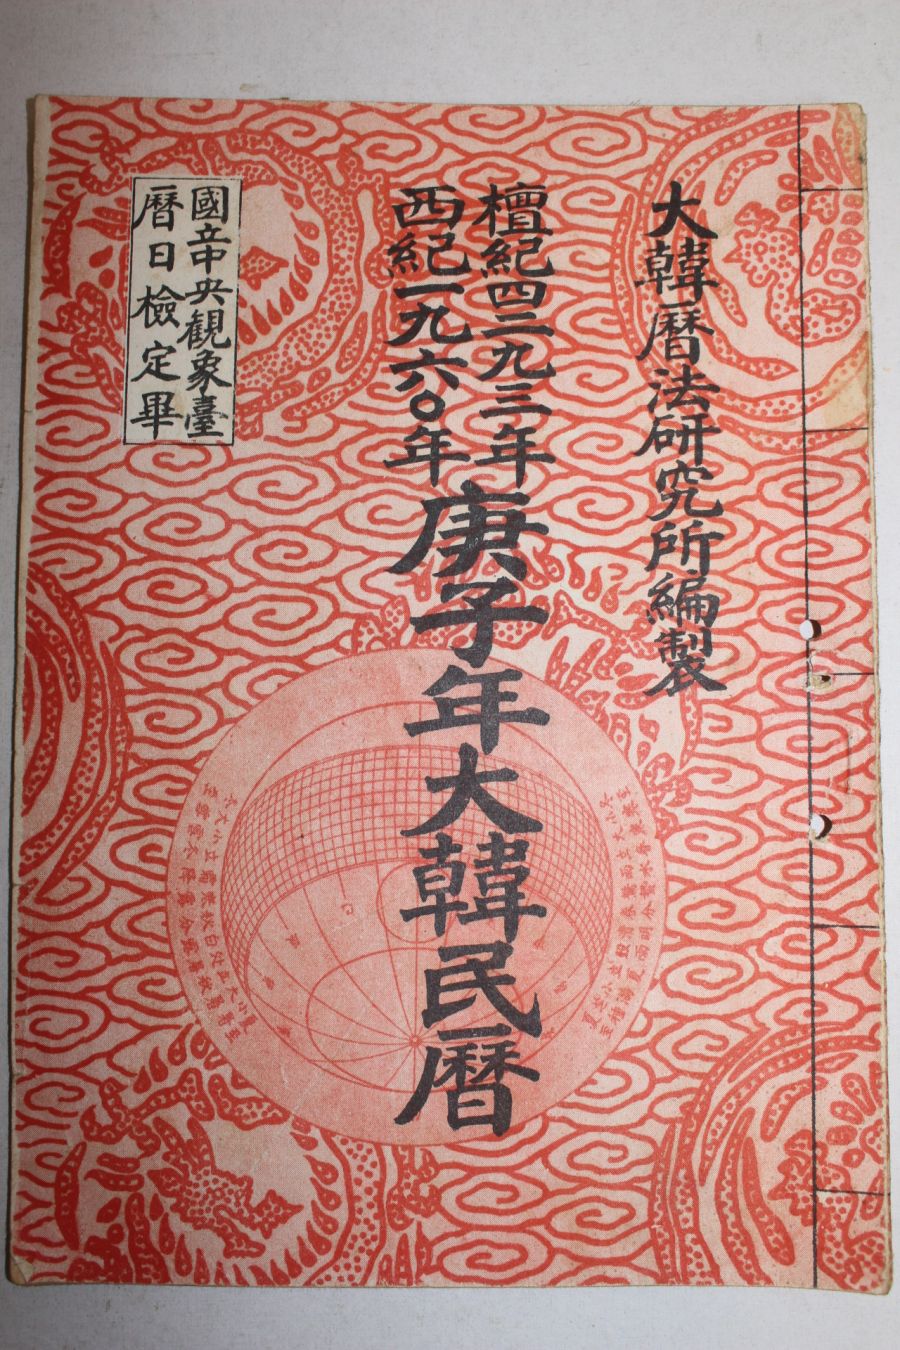 大韓曆法研究所編製
檀紀四二九三年
西紀一九六〇年
庚子年大韓民曆
國立中央觀象臺
曆日檢定畢